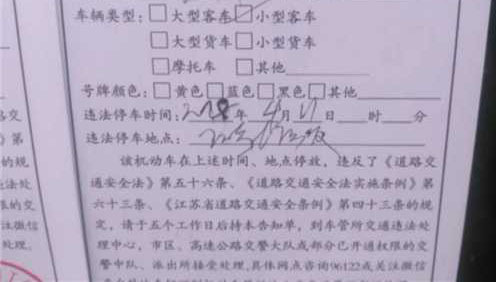 车辆类型：□大型客车☑小型客车
□大型货车□小型货车
□摩托车 □其他
号牌颜色：□黄色□蓝色□黑色□其他
违法停车时间：年 4月 日 时 分
违法停车地点：
该机动车在上述时间、地点停放，违反了《道路交
通安全法》第五十六条、《道路交通安全法实施条例》第
六十三条、《江苏省道路交通安全条例》第四十三条的规
定，请于五个工作日后持本告知单，到车管所交通违法处
理中心、市区、高速公路交警大队或部分已开通权限的交
警中队、派出所接受处理，具体网点咨询96122或关注微信
路交
》第
的规
法处
限的交
注微信
处理。